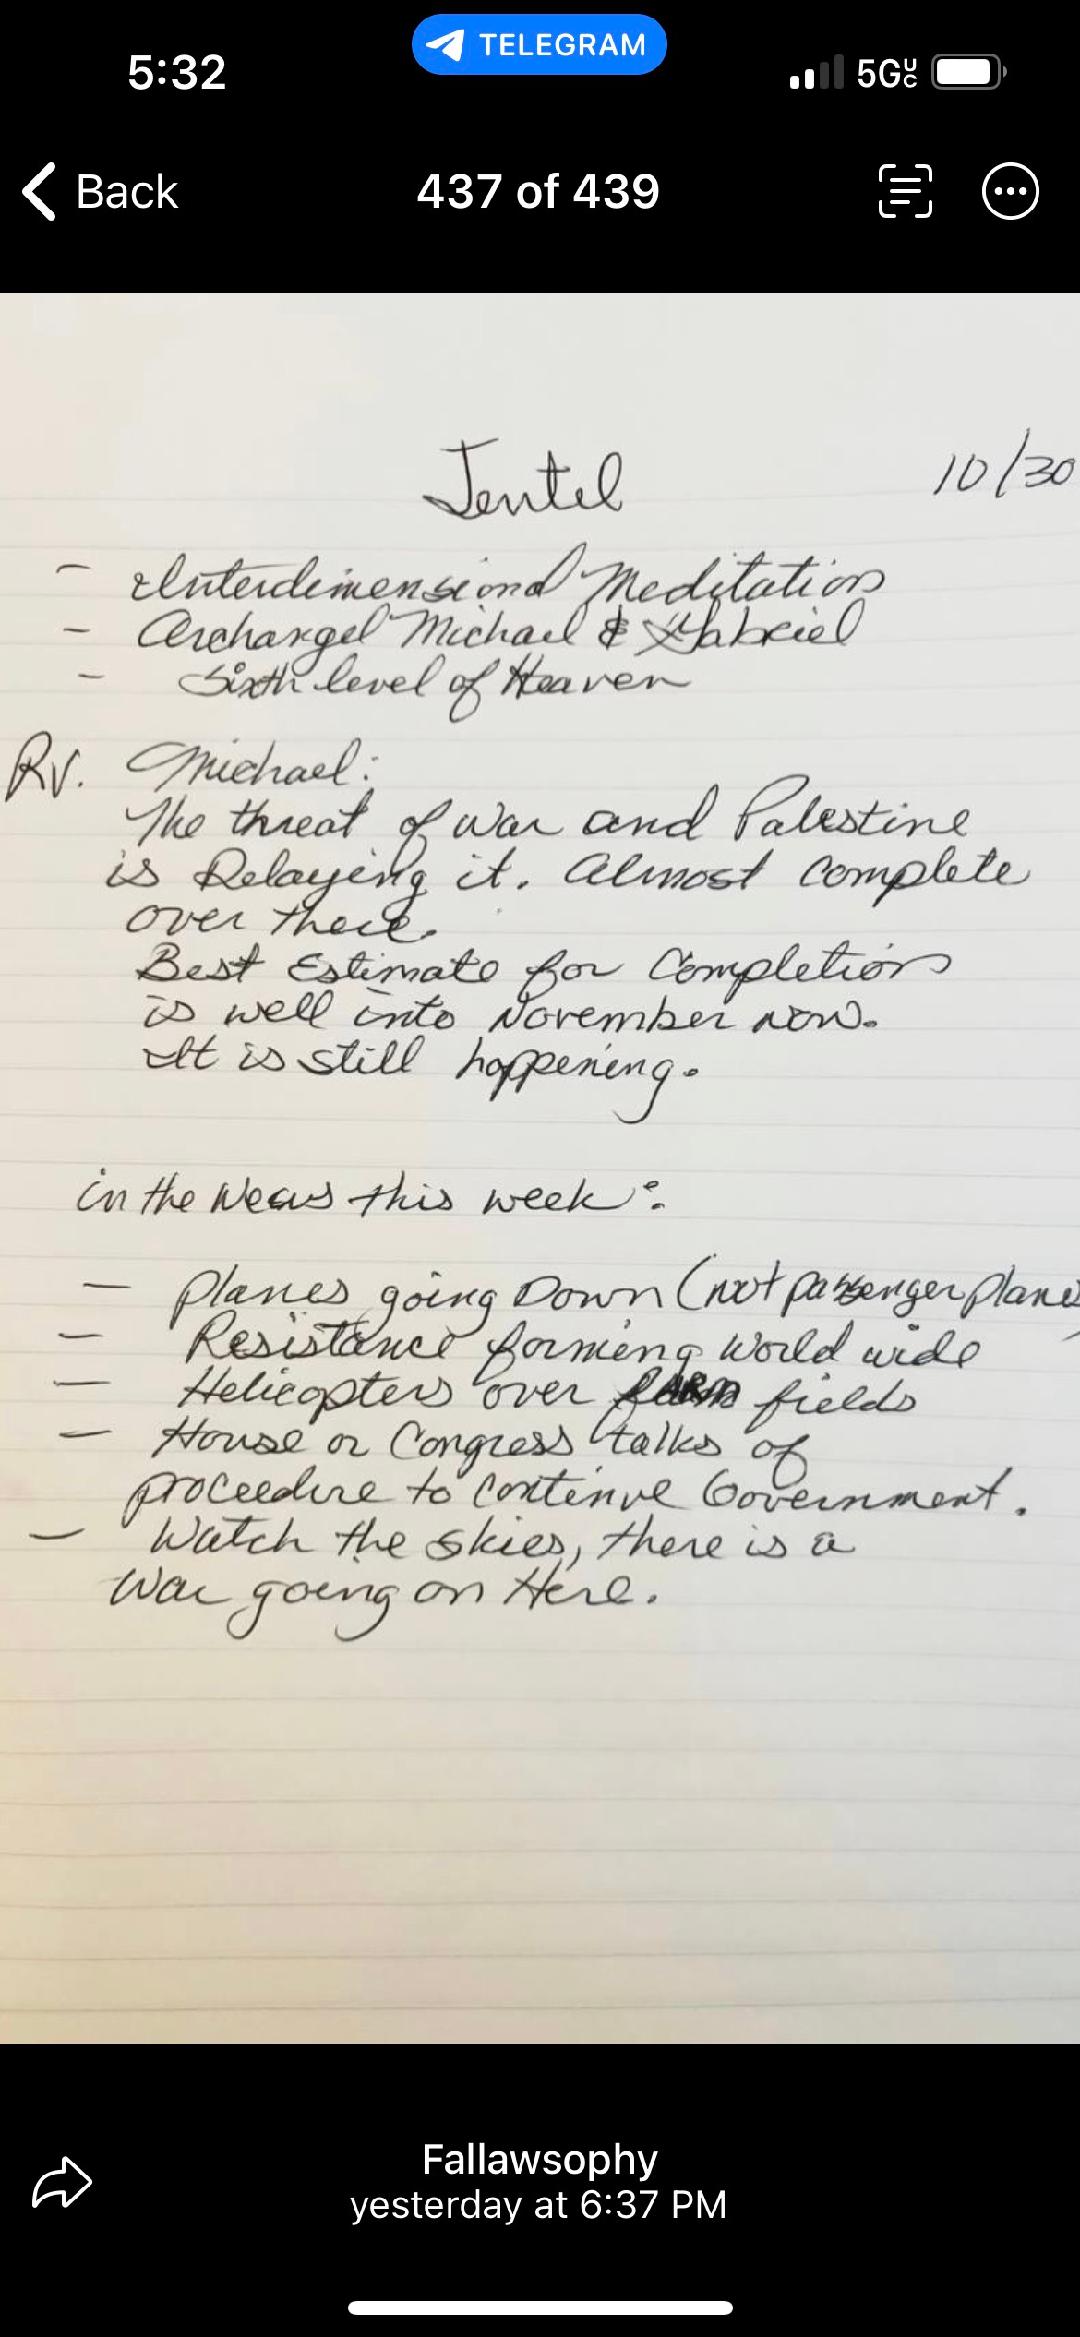 5:32
TELEGRAM
5G
Back
437 of 439
Jentel
10/30
- Interdimensional Meditation
- Archangel Michael & Gabriel
- Sixth level of Heaven
RV. Michael:
The threat of war and Palestine
is Delaying it. Almost complete
over there.
Best Estimate for Completion
is well into November now.
It is still happening.
in the News this week:
- planes going Down (not passenger planes
- Resistance forming world wide
- Helicopters over farm fields
- House or Congress talks of
proceedure to continue Government.
- Watch the skies, there is a
War going on Here.
Fallawsophy
yesterday at 6:37 PM